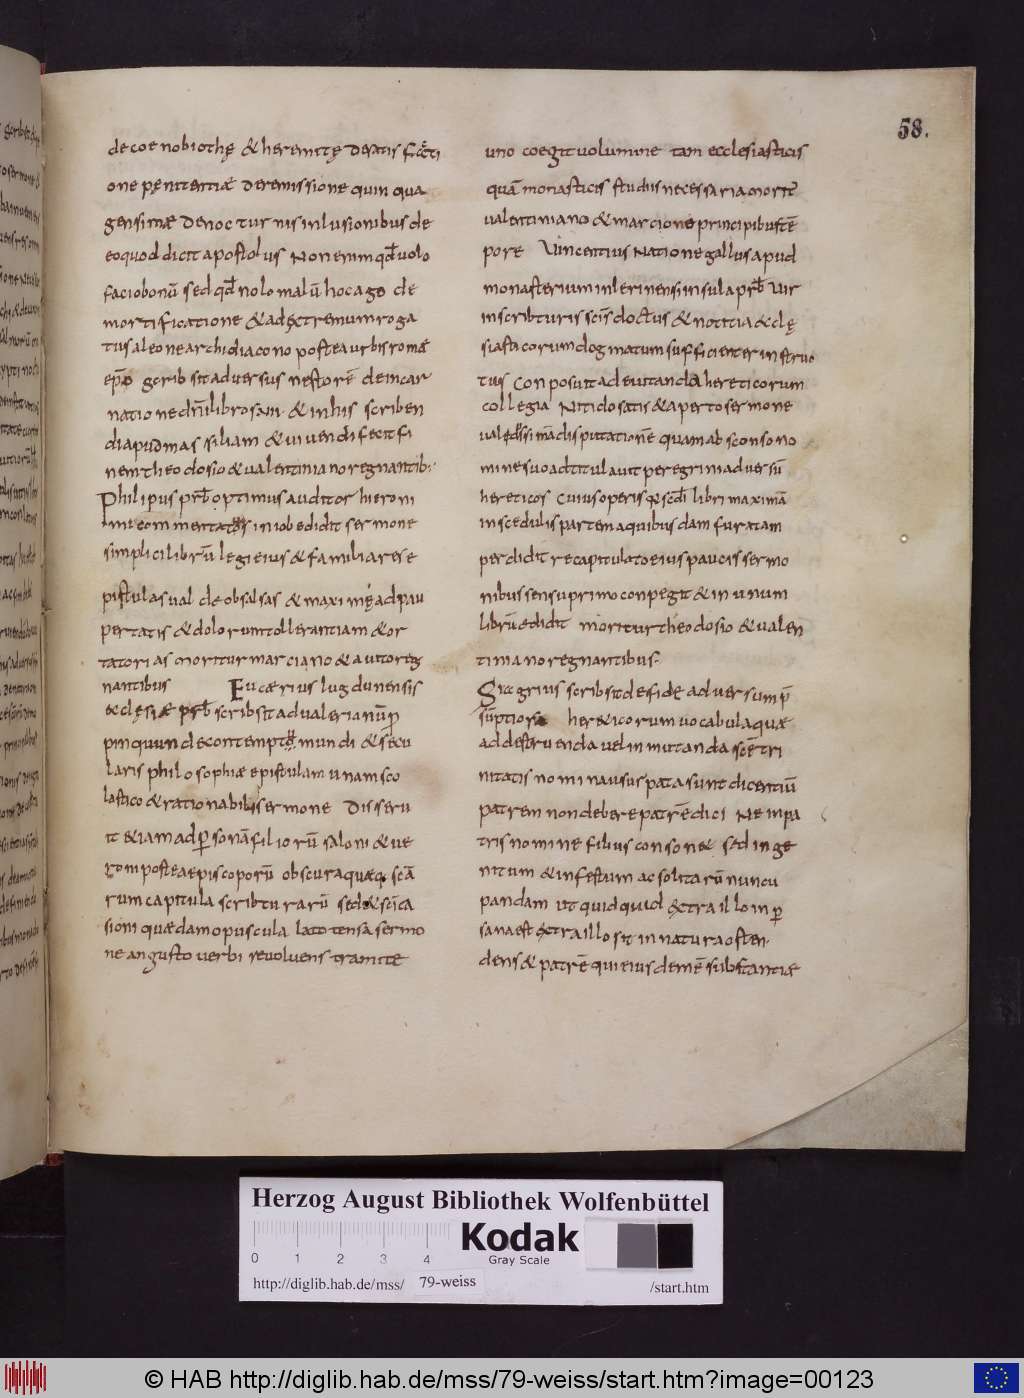 58.
de coenobiothę & heremitę de satis fac̄ti
one penitentiæ de remissione quin qua
gensimæ de nocturnis inlusionibus de
eo quod dicit apostolus Non enim qđ volo
facio bonū sed qđ nolo malū hoc ago de
mortificatione & ad extremum roga
tus a leone archidiacono postea urbis romæ
ep̄o scribsit adversus nestorē de incar
natione dn̄i libros & in his scriben
di apud massiliam & vivendi fecit fi
nem theodosio & valentiniano regnantib:
Philipus prb̄ optimus auditor hieroni
mi commentates in iob edidit sermone
simplici librū legi eius & familiares e
pistulas & valde obsalsas & maximę ad pau
pertatis & dolorum tollerantiam & or
tatorias moritur marciano & avito reg
nantibus Eucærius lugdunensis
ecclęsiæ prb̄ scribsit ad valerianū p
pinquum de contemptu mundi & secu
laris philosophiæ epistulam unam sco
lastico & rationabili sermone Disseru
it &iam ad personā filiorū saloni & ve
rom postea episcoporū obscura quæq. scā
rum capitula scribturarū sed & scīca
sioni quædam opuscula lato tensa sermo
ne angusto verbi revolvens tramite
uno coegit volumine tam ecclesiasticis
quā monasticis studiis necessaria moritr̄
valentiniano & marcione principibus tē
pore Vincentius Natione gallus apud
monasterium in lerinensi insula prb̄ vir
in scribturis scīs doctus & notitia ęclę
siasticorum dogmatum sufficienter instruc
tus Conposuit ad evitanda hereticorum
collegia Nitido satis & aperto sermone
validissimā disputationē quam absconso no
mine suo adtitulavit peregrini adversū
hereticos Cuius operis q; scđi libri maximā
in scedulis partem a quibusdam furatam
perdidit recapitulato eius paucis sermo
nibus sensu primo conpegit & in unum
librū edidit moritur theodosio & valen
tiniano regnantibus:
Siagrius scribsit de fide adversum p̄
sūptiosa her&icorum vocabula quæ
ad destruenda vel inmutanda scē tri
nitatis nomina usurpata sunt dicentiū
patrem non debere patrē dici Ne in pa
tris nomine filius conson& sed inge
nitum & infectum ac solitarū nuncu
pandam ut quidquid extra illo in p
sana est extra illo sit in natura osten.
dens & patrē qui eius dem ē substantiæ
Herzog August Bibliothek Wolfenbüttel
0 1 2 3 4
Kodak
Gray Scale
http://diglib.hab.de/mss/ 79-weiss /start.htm
© HAB http://diglib.hab.de/mss/79-weiss/start.htm?image=00123